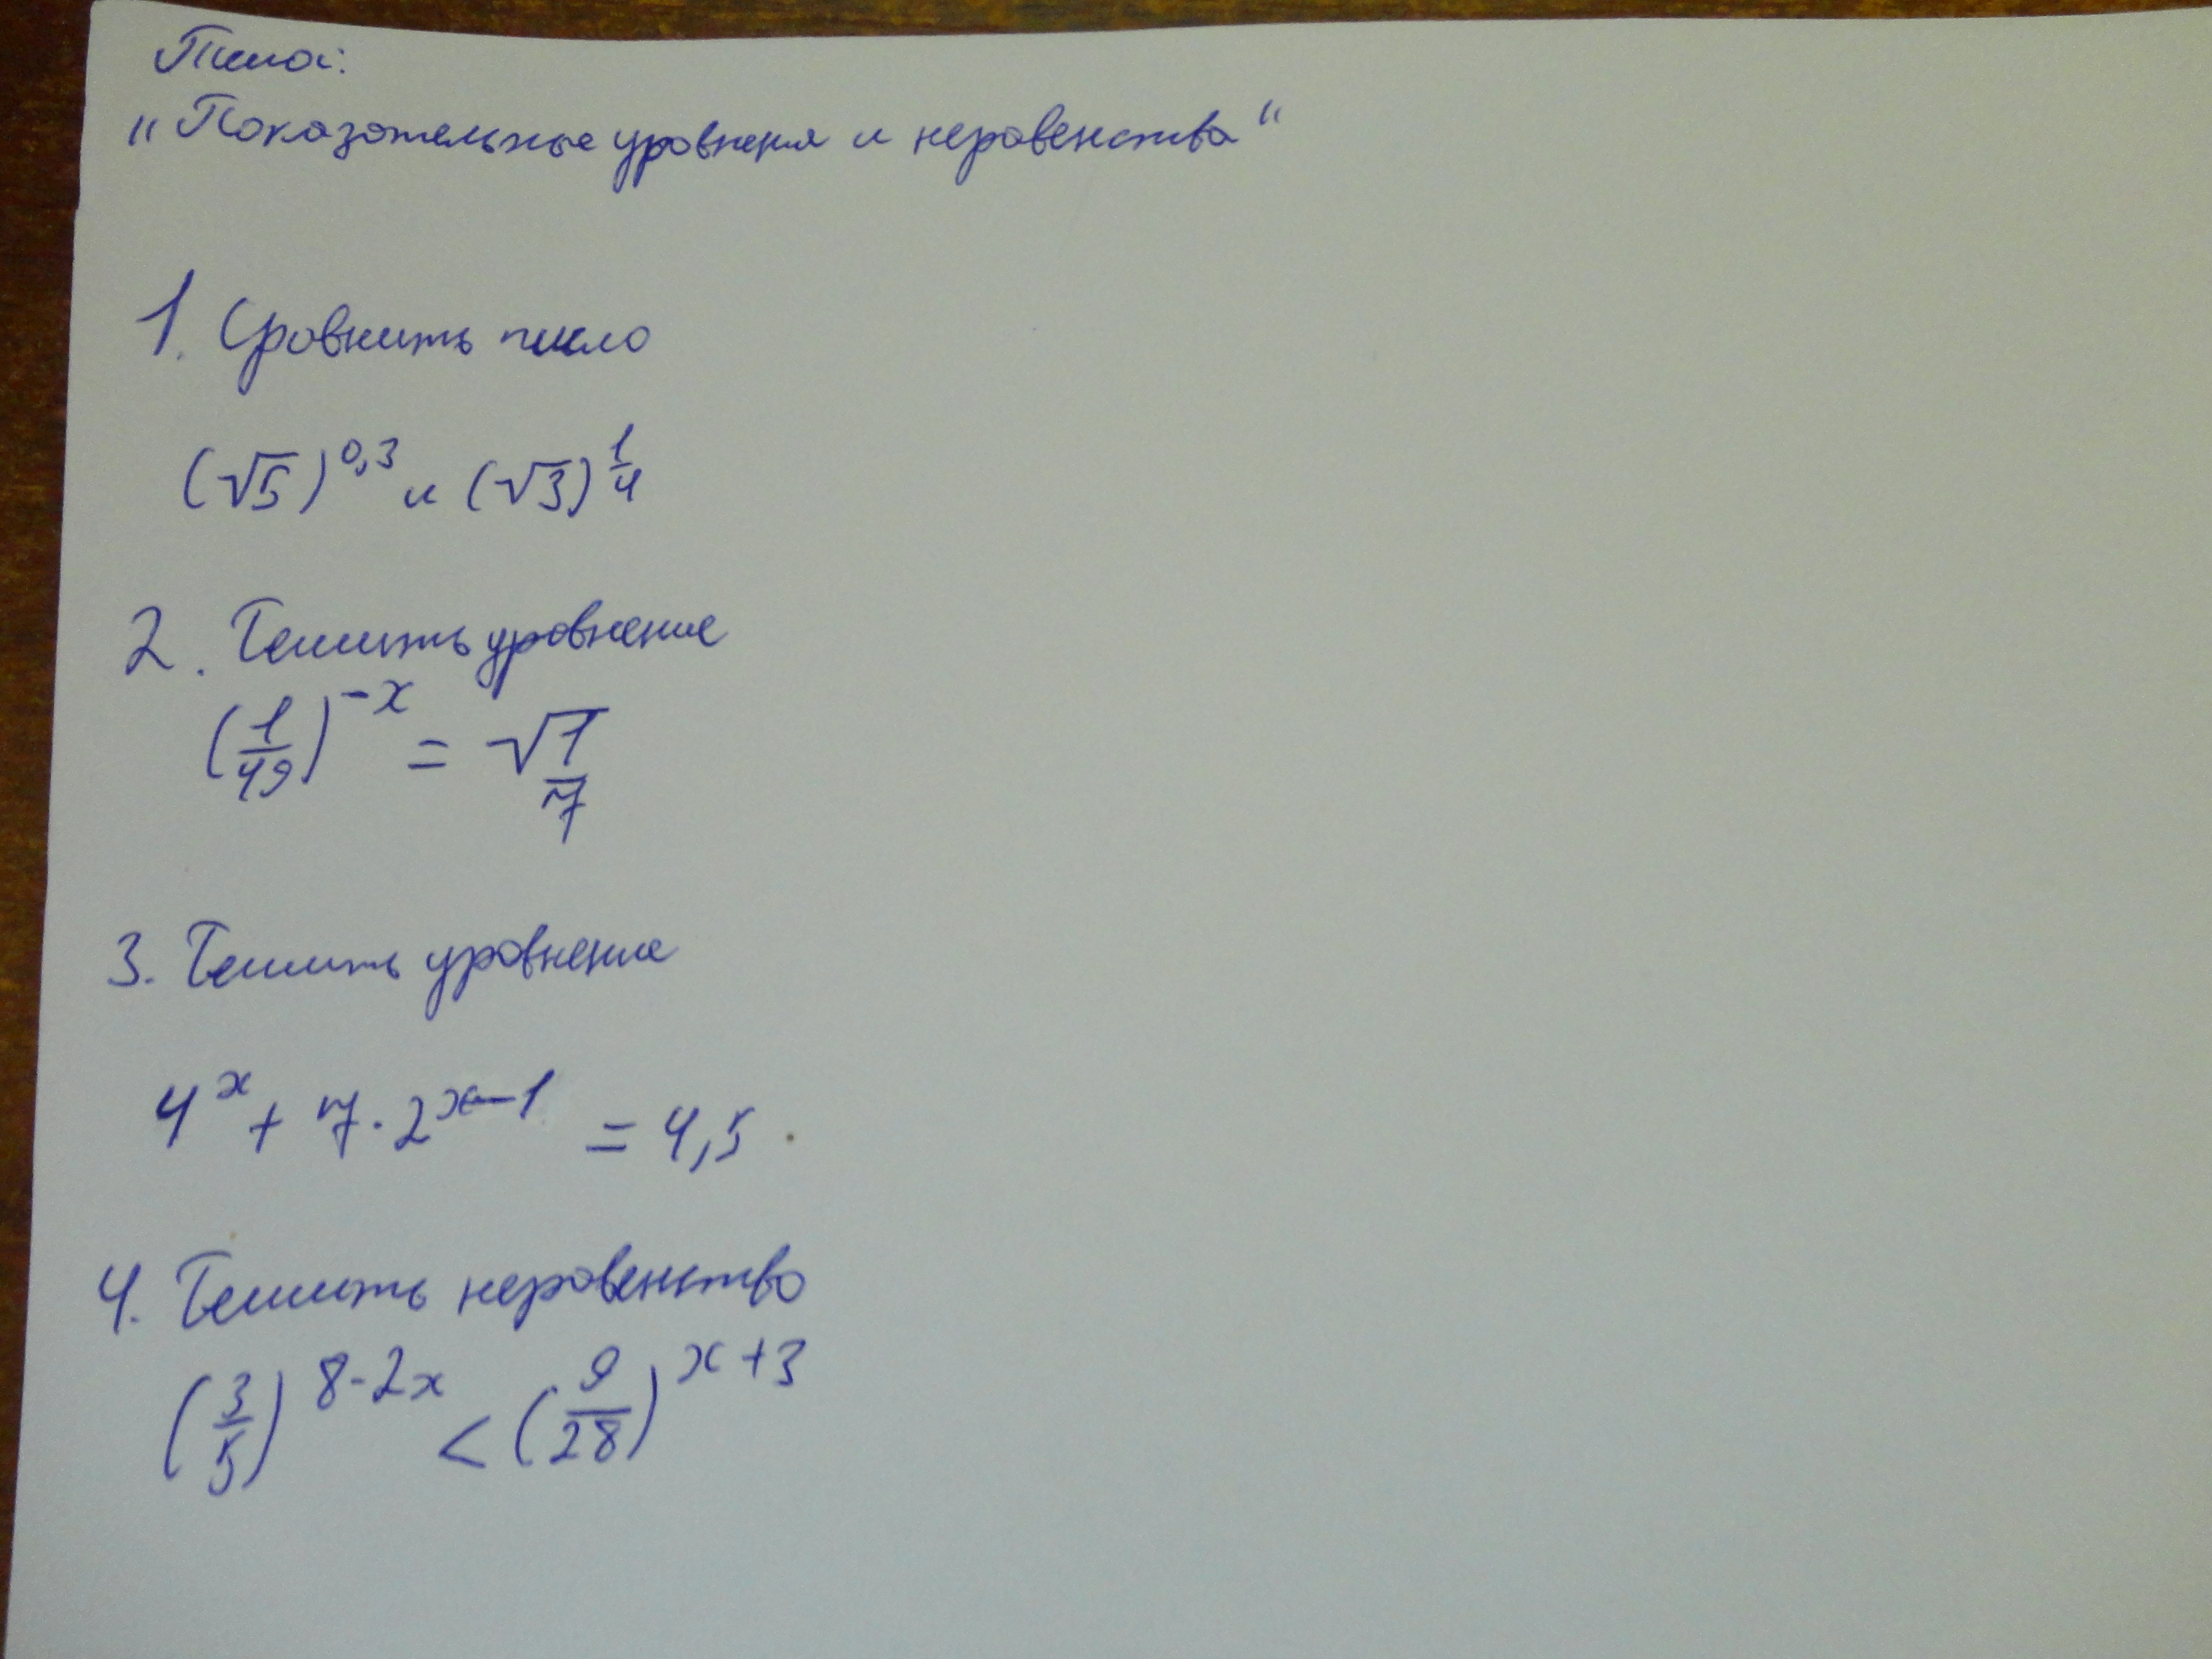 Тема:
„Показательные уравнения и неравенства“
1. Сравнить число
(√5)^0,3 и (√3)^1/4
2. Решить уравнение
(1/49)^-x = √1/7
3. Решить уравнение
4^x + 7·2^x-1 = 4,5
4. Решить неравенство
(3/5)^8-2x < (9/28)^x+3